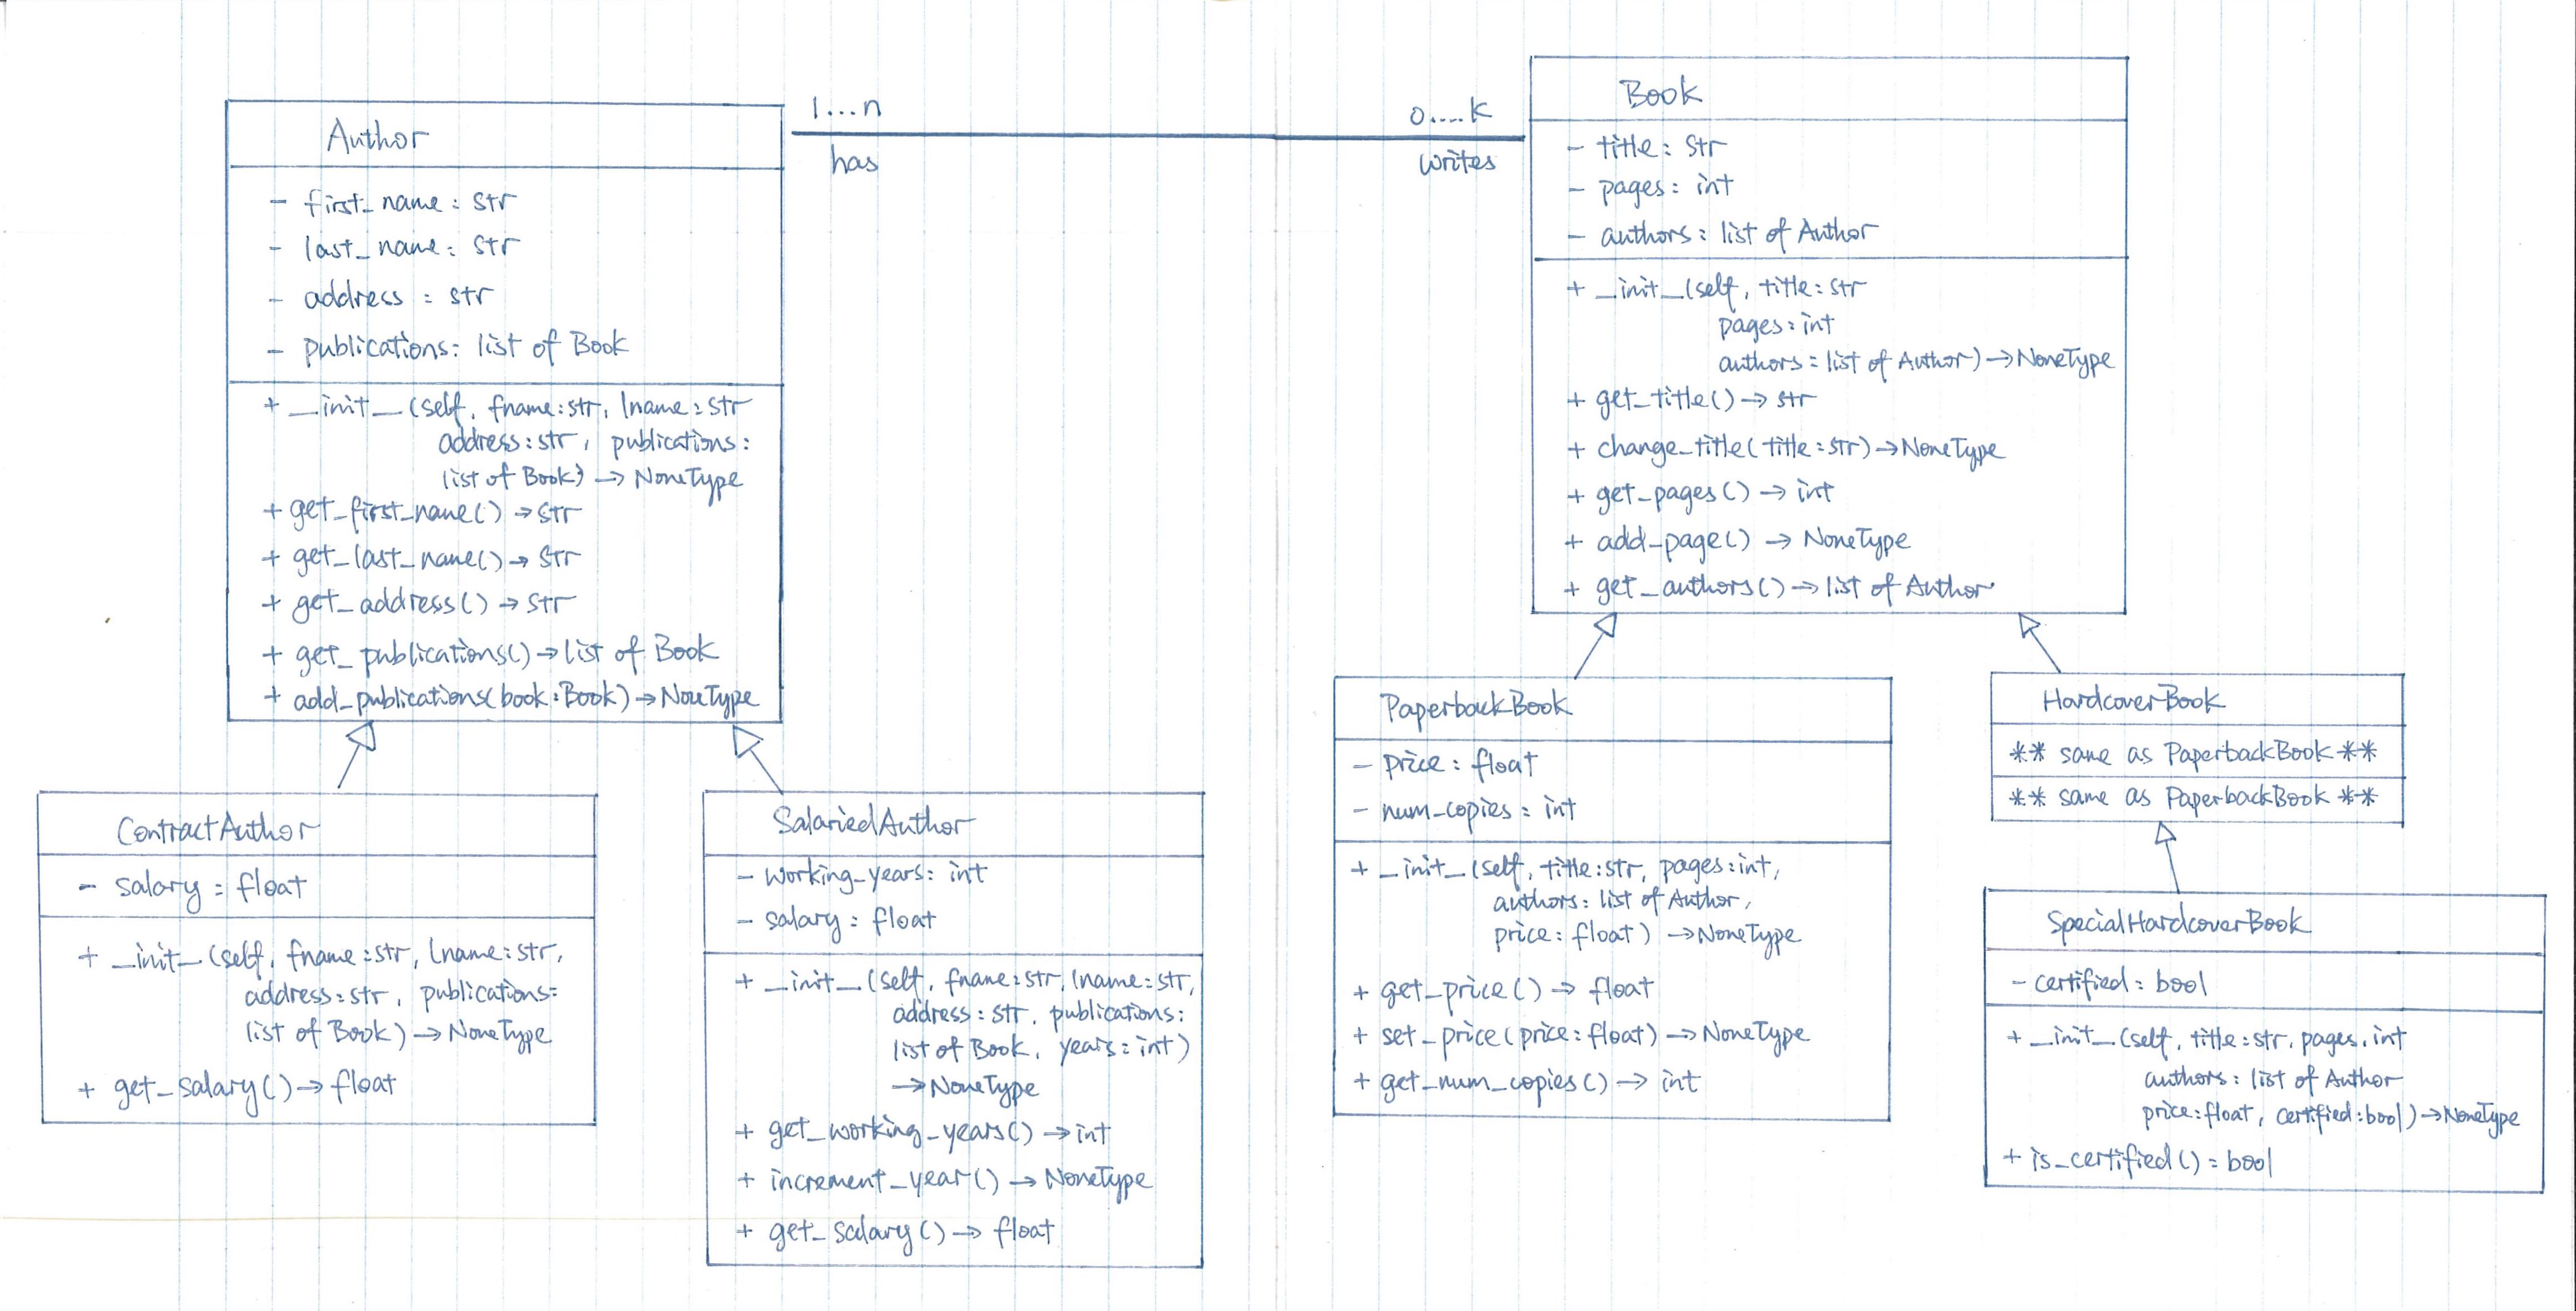 Author
- first_name : str
- last_name : str
- address : str
- publications: list of Book
+ __init__(self, fname:str, lname:str
address:str, publications:
list of Book) → NoneType
+ get_first_name() → str
+ get_last_name() → str
+ get_address() → str
+ get_publications() → list of Book
+ add_publications(book:Book) → NoneType
1...n
has
0....k
writes
Book
- title: str
- pages: int
- authors: list of Author
+ __init__(self, title:str
pages:int
authors: list of Author) → NoneType
+ get_title() → str
+ change_title(title:str) → NoneType
+ get_pages() → int
+ add_page() → NoneType
+ get_authors() → list of Author
ContractAuthor
- salary : float
+ __init__(self, fname:str, lname:str,
address:str, publications:
list of Book) → NoneType
+ get_salary() → float
SalariedAuthor
- working_years: int
- salary: float
+ __init__(self, fname:str, lname:str,
address:str, publications:
list of Book, years:int)
→ NoneType
+ get_working_years() → int
+ increment_year() → NoneType
+ get_salary() → float
PaperbackBook
- price: float
- num_copies: int
+ __init__(self, title:str, pages:int,
authors: list of Author,
price:float) → NoneType
+ get_price() → float
+ set_price(price:float) → NoneType
+ get_num_copies() → int
HardcoverBook
** same as PaperbackBook **
** same as PaperbackBook **
SpecialHardcoverBook
- certified: bool
+ __init__(self, title:str, pages, int
authors: list of Author
price:float, certified:bool) → NoneType
+ is_certified() : bool